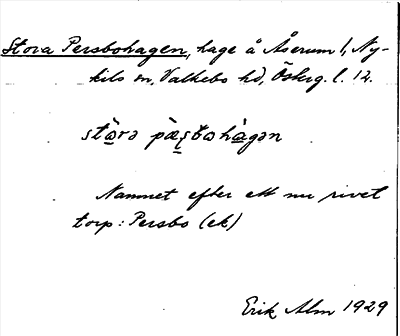 Stora Persbohagen, hage å Åserum 1, Ny-
kils sn, Valkebo hd, Österg. l. 12.
Namnet efter ett nu rivet
torp: Persbo (ek)
Erik Alm 1929